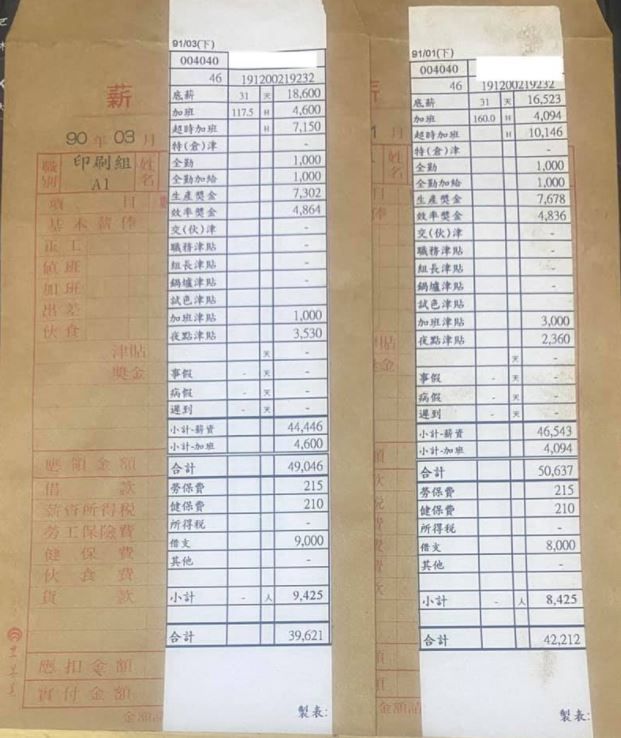 91/03(下)
004040
46 191200219232
底薪 31 天 18,600
加班 117.5 H 4,600
超時加班 H 7,150
特(倉)津 -
全勤 1,000
全勤加給 1,000
生產獎金 7,302
效率獎金 4,864
交(伙)津 -
職務津貼 -
組長津貼 -
鍋爐津貼 -
試色津貼
加班津貼 1,000
夜點津貼 3,530
天 -
事假 - 天 -
病假 - 天 -
遲到 - 天 -
小計-薪資 44,446
小計-加班 4,600
合計 49,046
勞保費 215
健保費 210
所得稅 -
借支 9,000
其他 -
小計 - 人 9,425
合計 39,621
製表:
91/01(下)
004040
46 191200219232
底薪 31 天 16,523
加班 160.0 H 4,094
超時加班 H 10,146
特(倉)津 -
全勤 1,000
全勤加給 1,000
生產獎金 7,678
效率獎金 4,836
交(伙)津 -
職務津貼 -
組長津貼 -
鍋爐津貼 -
試色津貼
加班津貼 3,000
夜點津貼 2,360
天 -
事假 - 天 -
病假 - 天 -
遲到 - 天 -
小計-薪資 46,543
小計-加班 4,094
合計 50,637
勞保費 215
健保費 210
所得稅 -
借支 8,000
其他 -
小計 - 人 8,425
合計 42,212
製表:
薪
90 年 03 月
職別 印刷組 A1 姓名
項 目
基本薪俸
正工
值班
加班
出差
伙食
津貼
獎金
應領金額
借款
薪資所得稅
勞工保險費
健保費
伙食費
貨款
應扣金額
實付金額
月
姓名